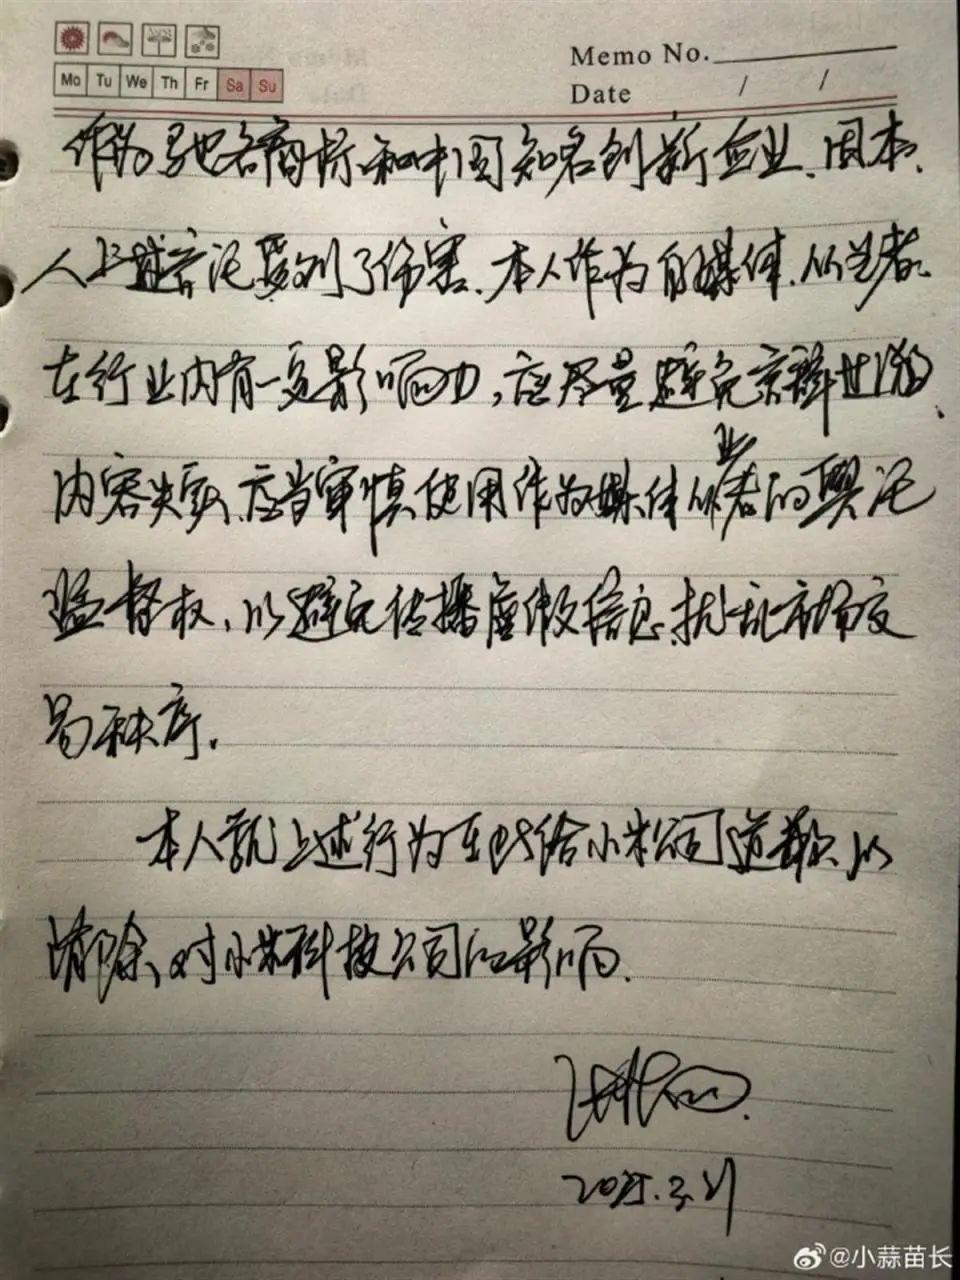 Mo Tu We Th Fr Sa Su
Memo No.
Date / /
作为驰名商标和中国知名创新企业、因本
人上述言论受到了伤害、本人作为自媒体、从业者
在行业内有一定影响力，应尽量避免
内容失实、应当审慎使用作为媒体从业者的舆论
监督权、以避免传播虚假信息、扰乱市场交
易秩序。
本人就上述行为在此给小米公司道歉、以
消除、对小米科技公司的影响.
2025.3.21
@小蒜苗长